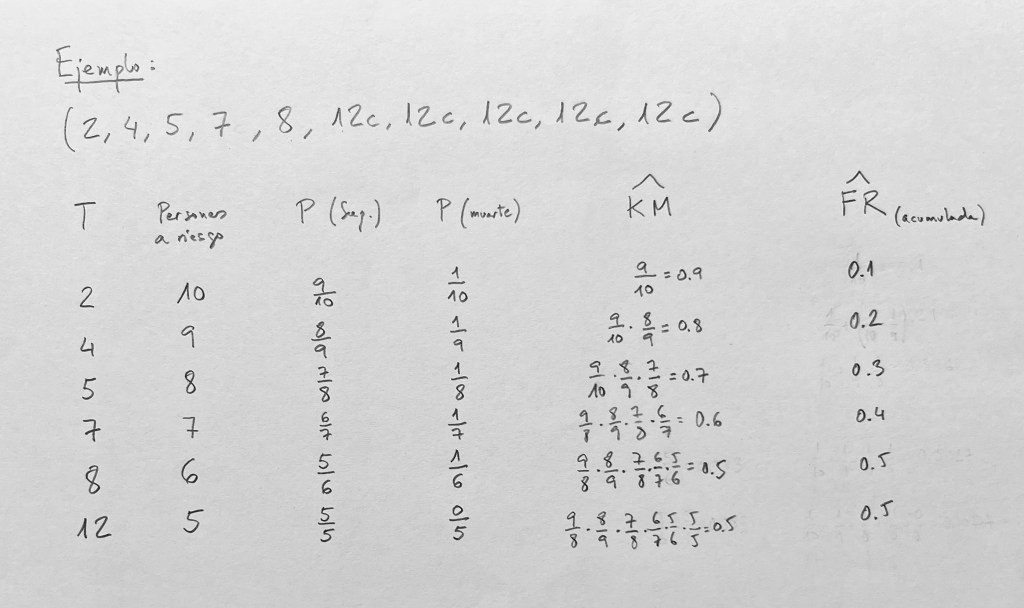 Ejemplo:
(2, 4, 5, 7, 8, 12c, 12c, 12c, 12c, 12c)
T Personas a riesgo P (Sup.) P (muerte) K̂M F̂R (acumulada)
2 10 9/10 1/10 9/10 = 0.9 0.1
4 9 8/9 1/9 9/10 · 8/9 = 0.8 0.2
5 8 7/8 1/8 9/10 · 8/9 · 7/8 = 0.7 0.3
7 7 6/7 1/7 9/8 · 8/9 · 7/8 · 6/7 = 0.6 0.4
8 6 5/6 1/6 9/8 · 8/9 · 7/8 · 6/7 · 5/6 = 0.5 0.5
12 5 5/5 0/5 9/8 · 8/9 · 7/8 · 6/7 · 5/6 · 5/5 = 0.5 0.5